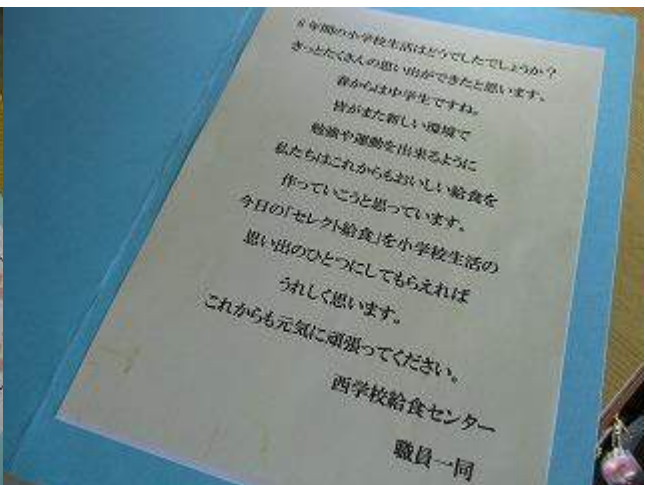 6年間の小学校生活はどうでしたでしょうか？
きっとたくさんの思い出ができたと思います。
春からは中学生ですね。
皆がまた新しい環境で
勉強や運動を出来るように
私たちはこれからもおいしい給食を
作っていこうと思っています。
今日の「セレクト給食」を小学校生活の
思い出のひとつにしてもらえれば
うれしく思います。
これからも元気に頑張ってください。
西学校給食センター
職員一同